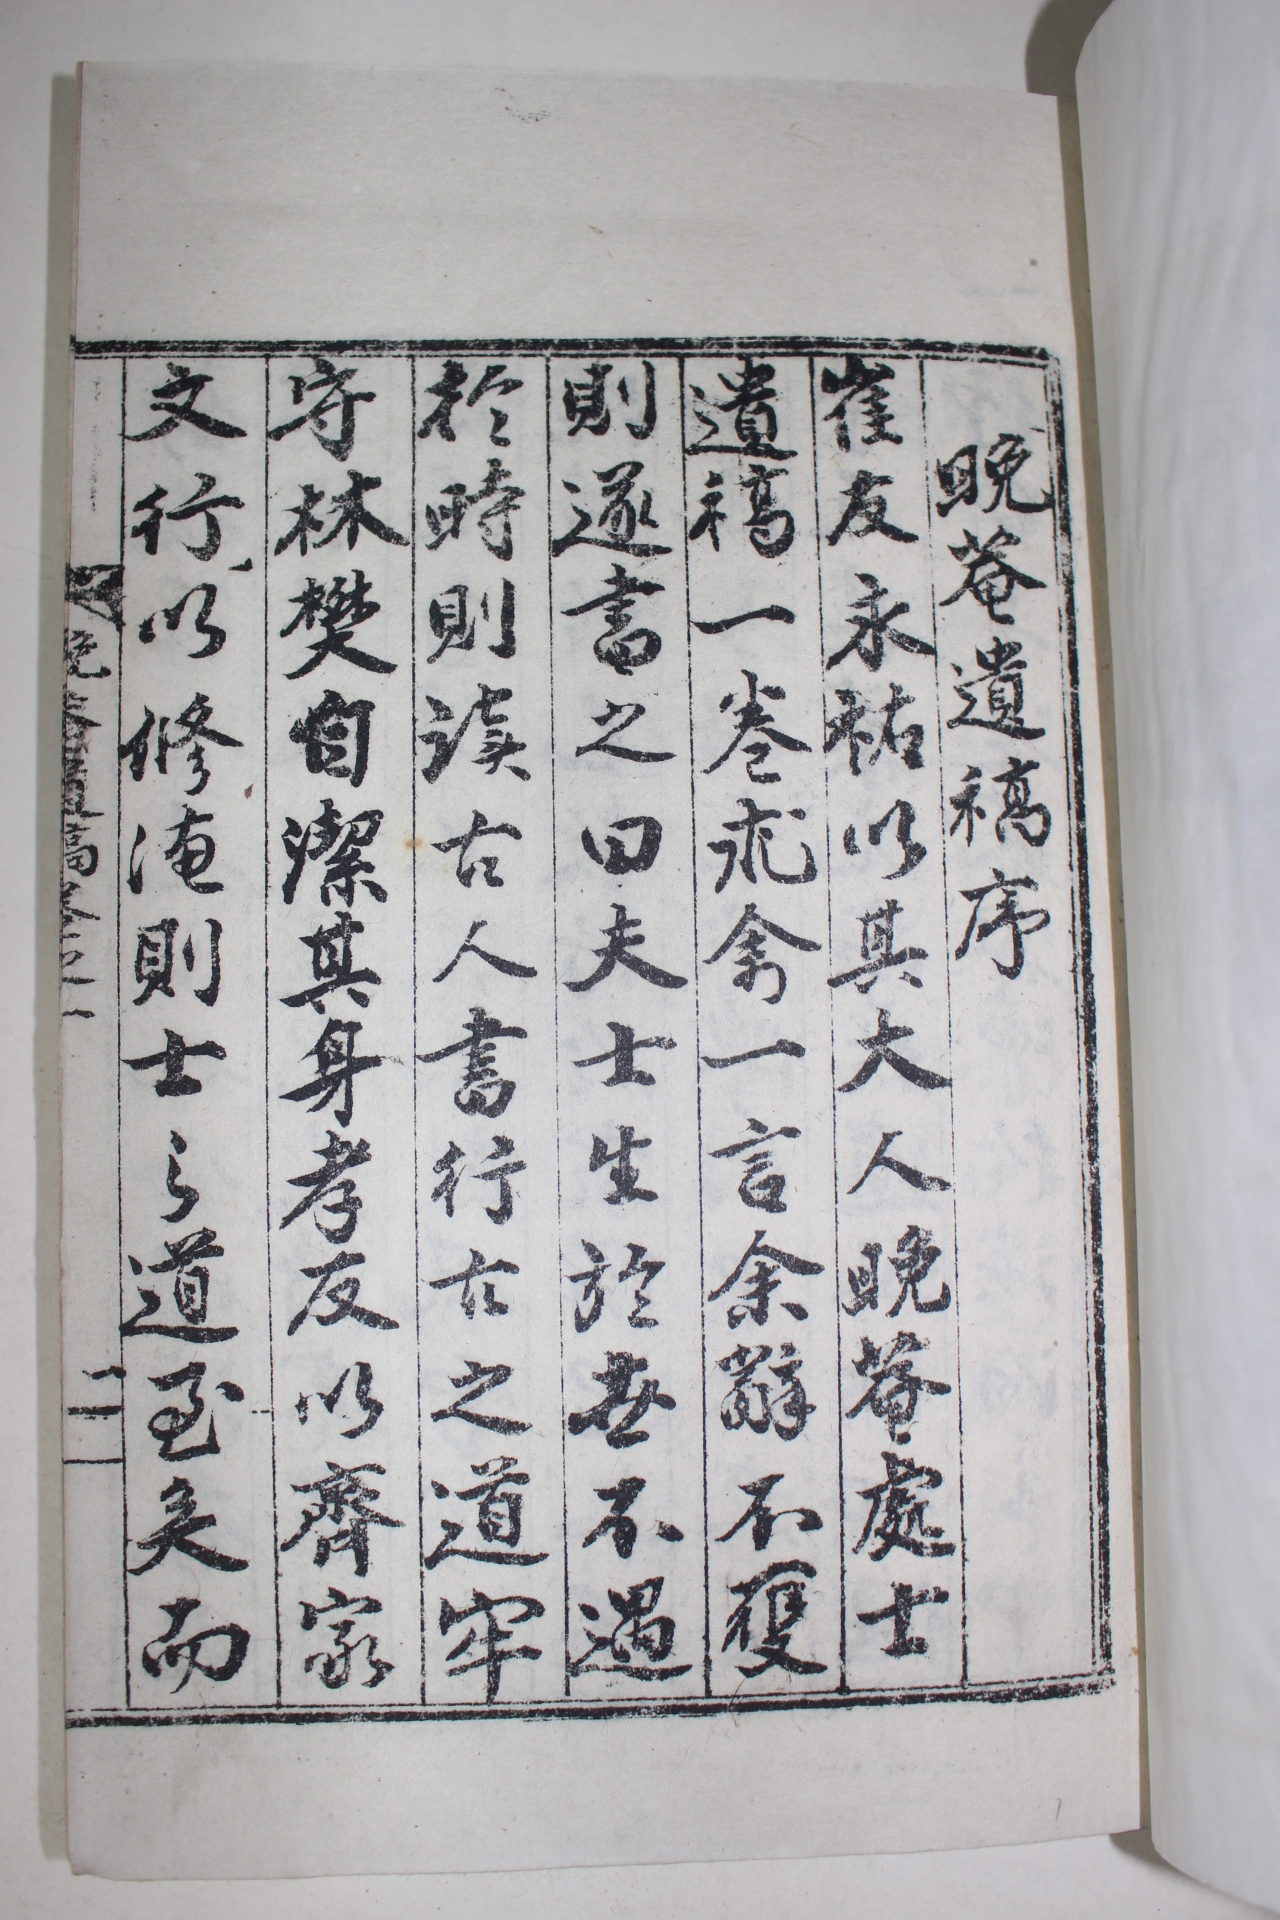 晩菴遺稿序
崔友永祐以其大人晩菴處士
遺稿一卷求余一言余辭不獲
則遂書之曰夫士生於世不遇
於時則讀古人書行古之道牢
守林樊自潔其身孝友以齊家
文行以修淹則士之道至矣而
晩菴遺稿卷之一
一